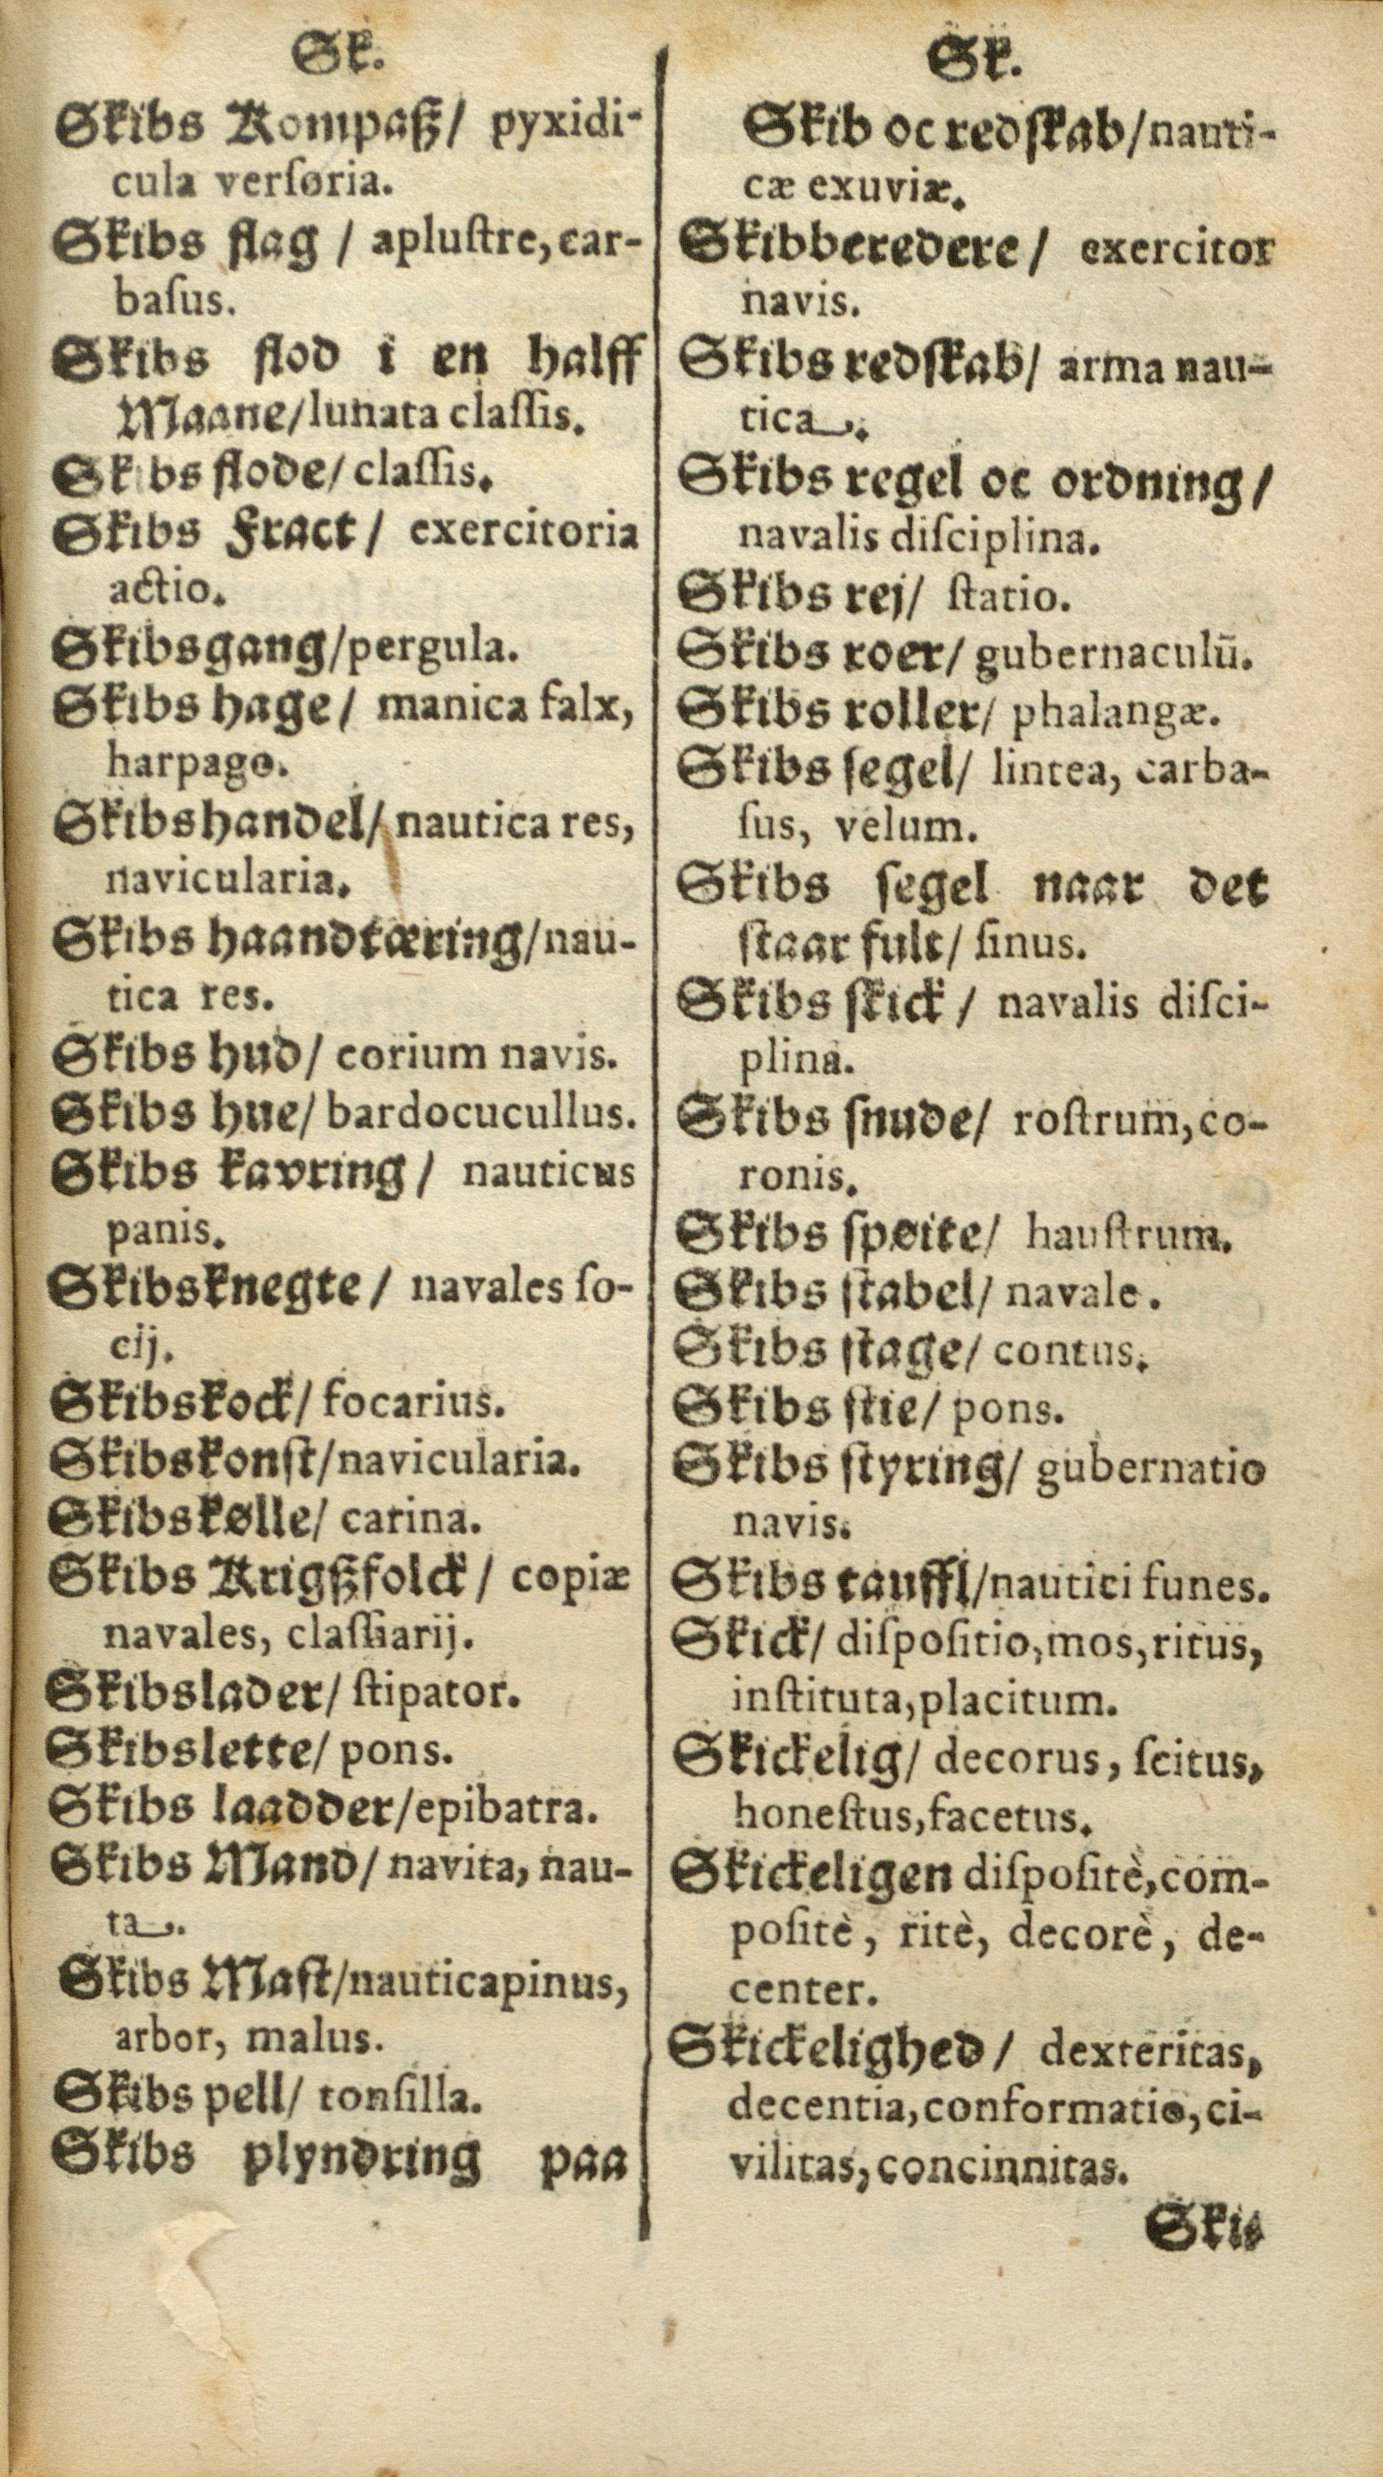 Sk.
Skibs Kompaß/ pyxidi-
cula verſøria.
Skibs flag / apluſtre, car-
baſus.
Skibs flod i en halff
Maane/lunata claſſis.
Skibs flode/ claſſis.
Skibs Fract/ exercitoria
actio.
Skibsgang/pergula.
Skibs hage/ manica falx,
harpago.
Skibshandel/ nautica res,
navicularia.
Skibs haandtæring/nau-
tica res.
Skibs hud/ corium navis.
Skibs hue/ bardocucullus.
Skibs kavring/ nauticus
panis.
Skibsknegte/ navales ſo-
cij.
Skibskock/ focarius.
Skibskonſt/navicularia.
Skibskølle/ carina.
Skibs Krigßfolck/ copiæ
navales, claſſiarij.
Skibslader/ ſtipator.
Skibslette/ pons.
Skibs laadder/epibatra.
Skibs Mand/ navita, nau-
ta.
Skibs Maſt/nauticapinus,
arbor, malus.
Skibs pell/ tonſilla.
Skibs plyndring paa
Sk.
Skib oc redſkab/nauti-
cæ exuviæ.
Skibberedere/ exercitor
navis.
Skibs redſkab/ arma nau-
tica.
Skibs regel oc ordning/
navalis diſciplina.
Skibs rej/ ſtatio.
Skibs roer/ gubernaculū.
Skibs roller/ phalangæ.
Skibs ſegel/ lintea, carba-
ſus, velum.
Skibs ſegel naar det
ſtaar fult/ ſinus.
Skibs ſkick/ navalis diſci-
plina.
Skibs ſnude/ roſtrum, co-
ronis.
Skibs ſpøite/ hauſtrum.
Skibs ſtabel/ navale.
Skibs ſtage/ contus.
Skibs ſtie/ pons.
Skibs ſtyring/ gubernatio
navis.
Skibs tauffl/nautici funes.
Skick/ diſpoſitio, mos, ritus,
inſtituta, placitum.
Skickelig/ decorus, ſcitus,
honeſtus, facetus.
Skickeligen diſpoſitè, com-
poſitè, ritè, decorè, de-
center.
Skickelighed/ dexteritas,
decentia, conformatio, ci-
vilitas, concinnitas.
Skie